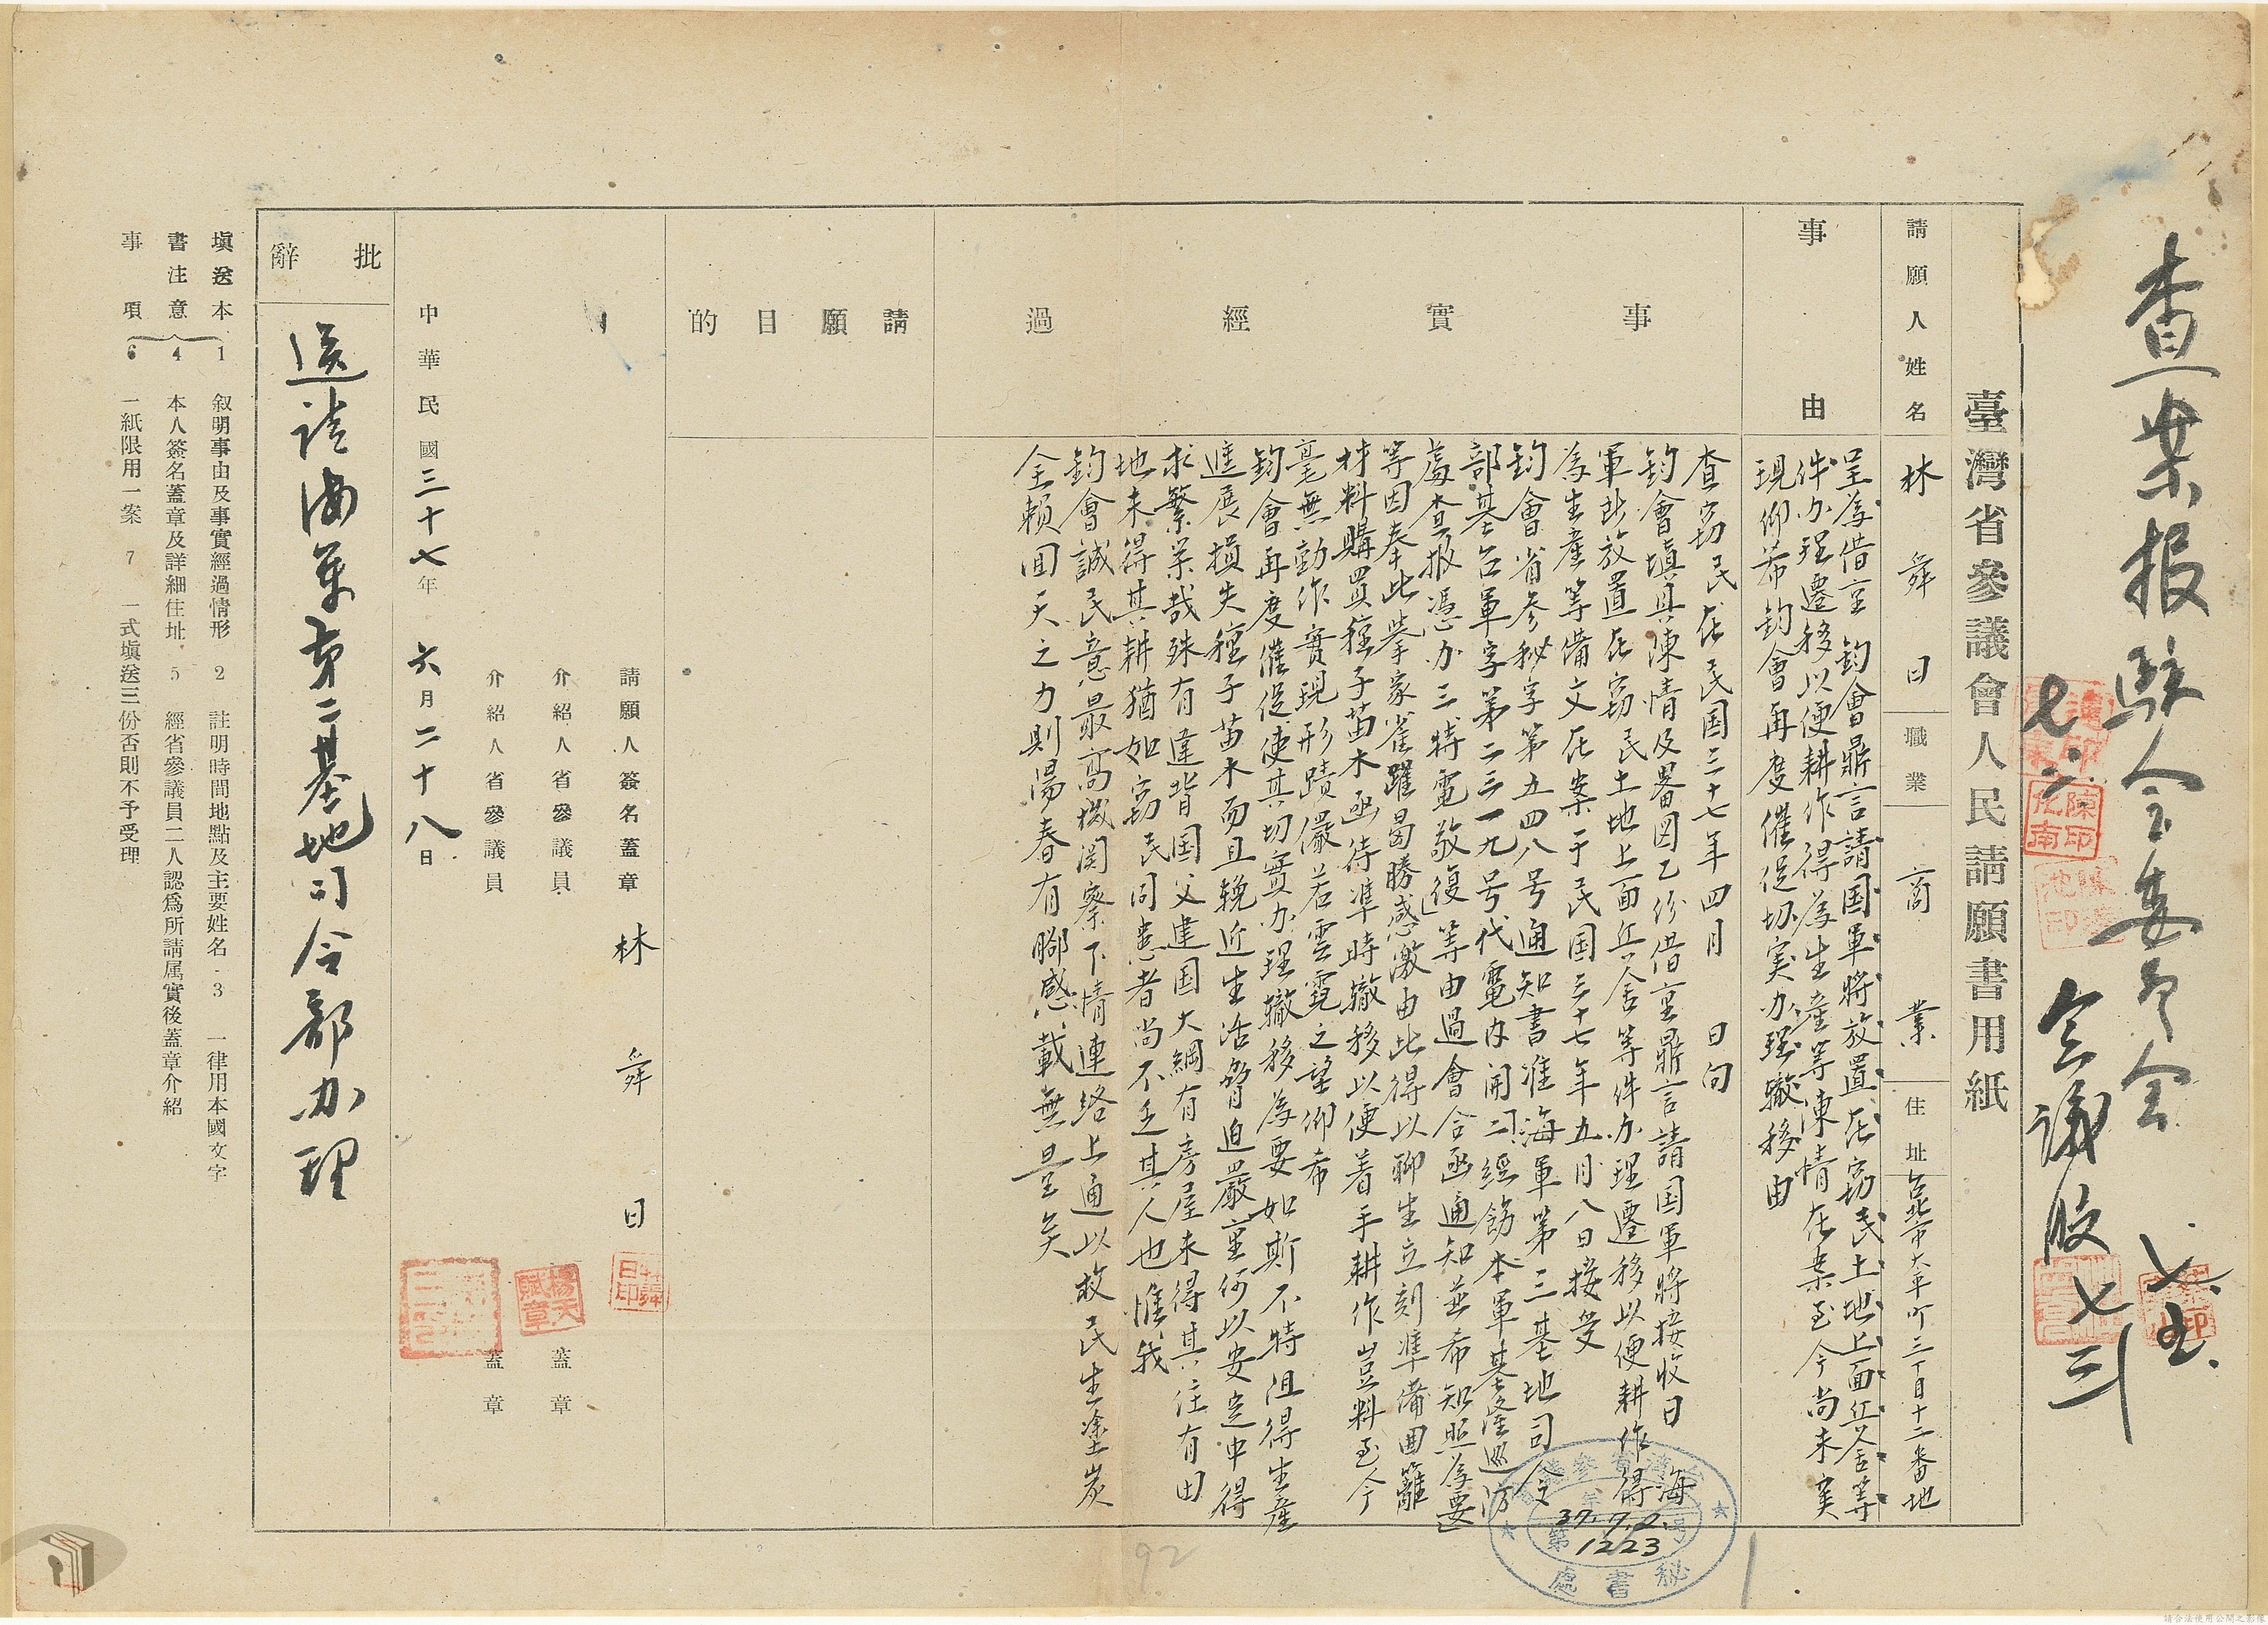 查案報駐會委員會
七.二.
會議股
臺灣省參議會人民請願書用紙
請願人姓名 林舜日 職業 商業 住址 台北市大平町三丁目十二番地
事由
呈為借重 鈞會鼎言請国軍將放置在窃民土地上面兵舍等
件办理遷移以便耕作得為生產等陳情在案至今尚未实
現仰希鈞會再度催促切实办理撤移由
事實經過
查窃民在民国三十七年四月 日向
鈞會填具陳情及畧図乙份借重鼎言請国軍將接收日海
軍跡放置在窃民土地上面兵舍等件办理遷移以便耕作得
為生產等備文在案于民国三十七年五月八日接受
鈞會省参秘字第五四八号通知書准海軍第三基地司令
部基台軍字第二三一九号代電內開「二經飭本軍基隆巡防
處查报憑办三特電敬復」等由過會合函通知並希知照為要」
等因奉此舉家雀躍曷勝感激由此得以聊生立刻準備囲籬
材料購買種子苗木函待準時撤移以便着手耕作豈料至今
毫無動作實現形蹟儼若雲霓之望仰希
鈞會再度催促使其切實办理撤移為要如斯不特沮得生產
進展損失種子苗木而且輓近生活脅迫嚴重何以安定申得
求繁荣哉殊有違背国父建国大綱有房屋未得其住有田
地未得其耕猶如窃民同患者尚不乏其人也惟我
鈞會誠民意最高機関察下情連絡上通以救民生塗炭
全賴囬天之力則湯春有腳感載無量矣
請願目的
請願人簽名蓋章 林舜日
介紹人省參議員 蓋章
楊天賦章
介紹人省參議員 蓋章
中華民國三十七年六月二十八日
批辭
送請海軍第三基地司令部办理
填送本書注意事項
1 叙明事由及事實經過情形 2 註明時間地點及主要姓名 3 一律用本國文字
4 本人簽名蓋章及詳細住址 5 經省參議員二人認為所請屬實後蓋章介紹
6 一紙限用一案 7 一式填送三份否則不予受理
37.7.2.
第1223号
秘書處
92
請合法使用公開之影像